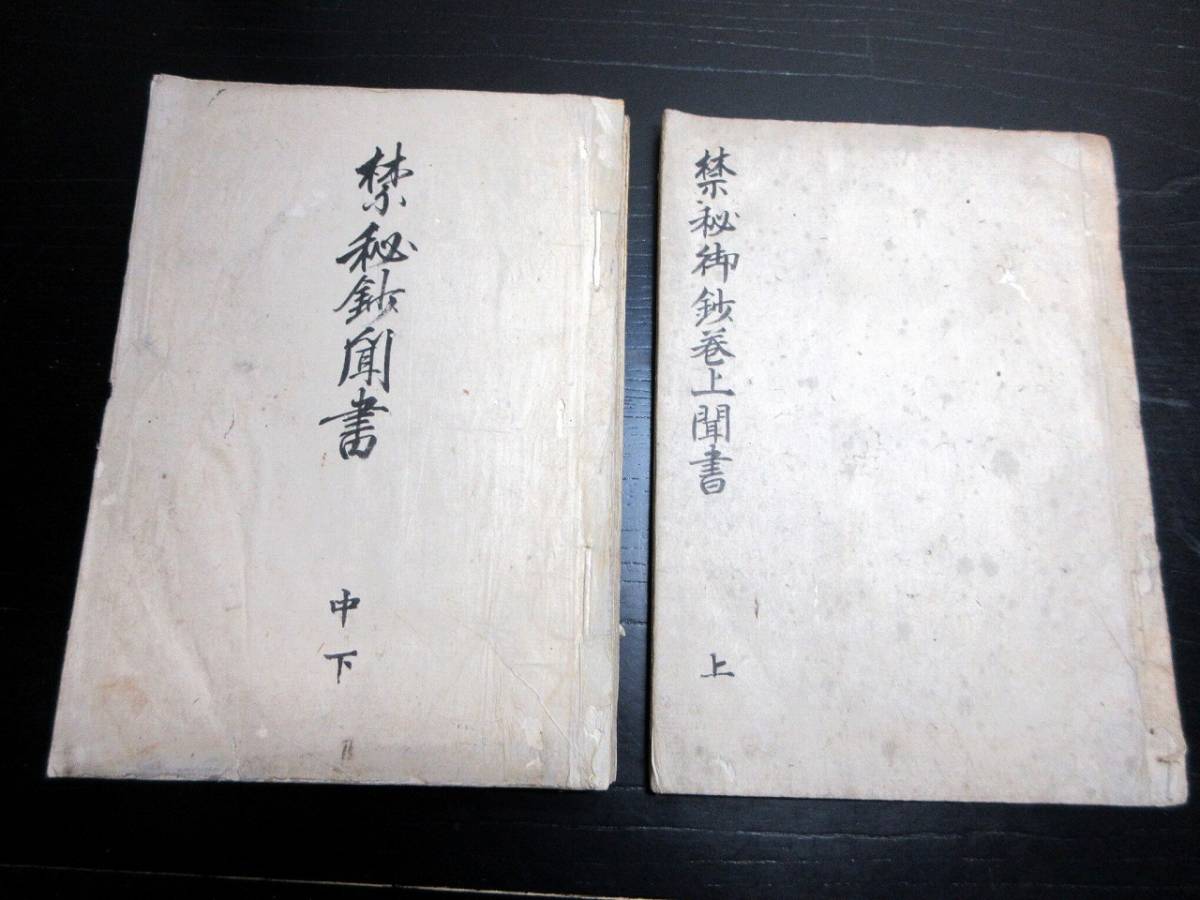 禁秘御鈔巻上聞書
上
禁秘鈔聞書
中
下